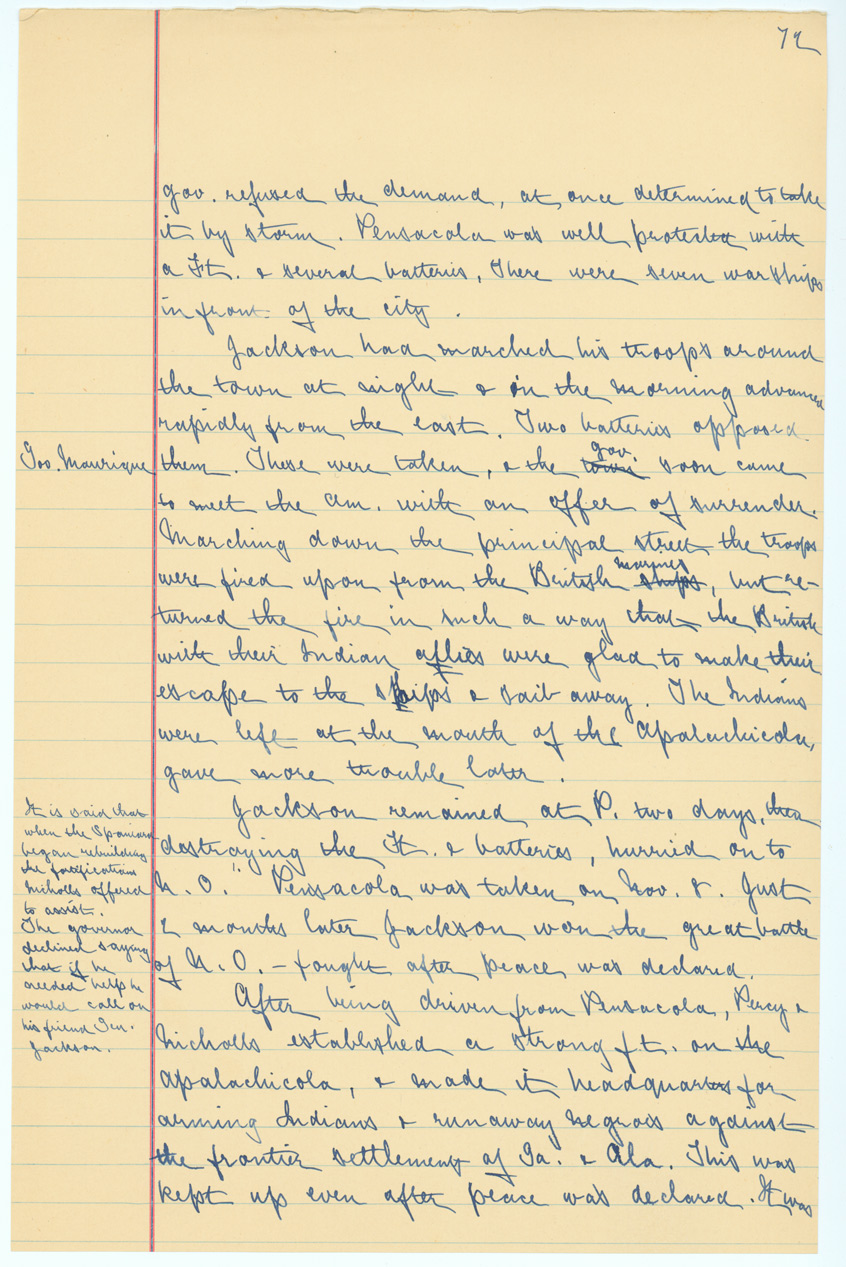 72
gov. refused the demand, at once determined to take
it by storm. Pensacola was well protected with
a Ft. & several batteries. There were seven warships
in front of the city.
Jackson had marched his troops around
the town at night & in the morning advanced
rapidly from the east. Two batteries opposed
Gov. Maurique
them. These were taken, & the town gov. soon came
to meet the Am. with an offer of surrender.
Marching down the principal street the troops
were fired upon from the British ships marines, but re-
turned the fire in such a way that the British
with their Indian allies were glad to make their
escape to the ships & sail away. The Indians
were left at the mouth of the Apalachicola,
gave more trouble later.
Jackson remained at P. two days, then
destroying the Ft. & batteries, hurried on to
N. O. Pensacola was taken on Nov. 8. Just
2 months later Jackson won the great battle
of N. O. - fought after peace was declared.
It is said that
when the Spaniards
began rebuilding
the fortifications
Nicholls offered
to assist.
The governor
declined saying
that if he
needed help he
would call on
his friend Gen.
Jackson.
After being driven from Pensacola, Percy &
Nicholls established a strong ft. on the
Apalachicola, & made it headquarters for
arming Indians & runaway negroes against
the frontier settlements of Ga. & Ala. This was
kept up even after peace was declared. It was